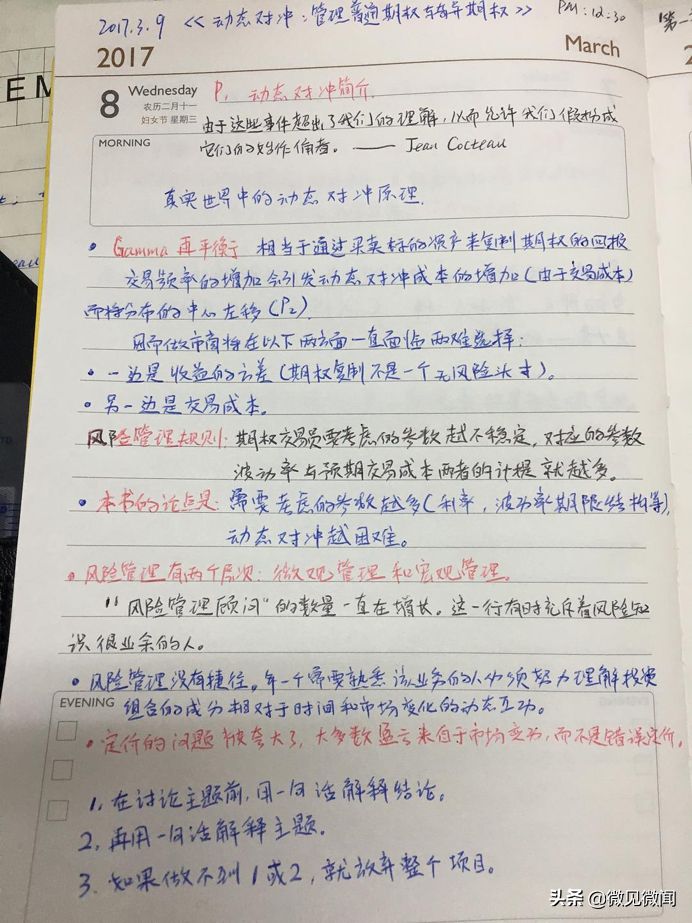 2017.3.9 《动态对冲：管理普通期权与奇异期权》 PM：12:30
2017
March
8 Wednesday
农历二月十一
妇女节 星期三
P1 动态对冲简介
由于这些事件超出了我们的理解，从而允许我们假扮成
它们的始作俑者。 —— Jean Cocteau
MORNING
真实世界中的动态对冲原理.
• Gamma再平衡于 相当于通过买卖标的资产来复制期权的回报
交易频率的增加会引发动态对冲成本的增加(由于交易成本)
而将分布的中心左移(P2).
因而做市商将在以下两方面一直面临两难选择：
• 一边是收益的方差(期权复制不是一个无风险头寸)。
• 另一边是交易成本。
风险管理规则：期权交易员要考虑的参数越不稳定，对应的参数
波动率与预期交易成本两者的计提就越多。
• 本书的论点是：需要考虑的参数越多(利率，波动率期限结构等)，
动态对冲越困难。
• 风险管理有两个层次：微观管理和宏观管理。
"风险管理顾问"的数量一直在增长。这一行有时充斥着风险知
识很业余的人。
• 风险管理没有捷径。每一个需要熟悉该业务的人必须努力理解投资
组合的成分相对于时间和市场变化的动态互动。
EVENING
• 定价的问题被夸大了，大多数盈亏来自于市场变动，而不是错误定价。
1. 在讨论主题前，用一句话解释结论。
2. 再用一句话解释主题。
3. 如果做不到1或2，就放弃整个项目。
头条 @微见微闻